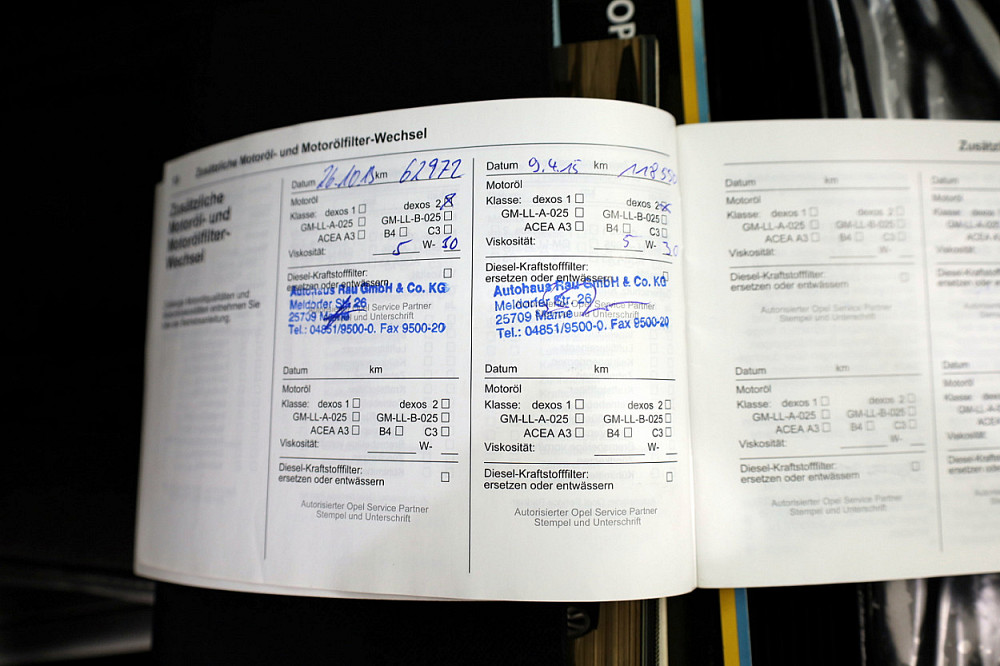 OP
Zusätzliche Motoröl- und Motorölfilter-Wechsel
Zusätzliche
Motoröl- und
Motorölfilter-
Wechsel
Datum 26.10.13 km 62972
Motoröl
Klasse: dexos 1 dexos 2
GM-LL-A-025 GM-LL-B-025
ACEA A3 B4 C3
Viskosität: 5 W- 30
Diesel-Kraftstofffilter:
ersetzen oder entwässern
Autohaus Rau GmbH & Co. KG
Meldorfer Str. 26
25709 Marne
Tel.: 04851/9500-0. Fax 9500-20
Autorisierter Opel Service Partner
Stempel und Unterschrift
Datum km
Motoröl
Klasse: dexos 1 dexos 2
GM-LL-A-025 GM-LL-B-025
ACEA A3 B4 C3
Viskosität: W-
Diesel-Kraftstofffilter:
ersetzen oder entwässern
Autorisierter Opel Service Partner
Stempel und Unterschrift
Datum 9.4.15 km
Motoröl
Klasse: dexos 1 dexos 2
GM-LL-A-025 GM-LL-B-025
ACEA A3 B4 C3
Viskosität: 5 W- 30
Diesel-Kraftstofffilter:
ersetzen oder entwässern
Autohaus Rau GmbH & Co. KG
Meldorfer Str. 26
25709 Marne
Tel.: 04851/9500-0. Fax 9500-20
Stempel und Unterschrift
Datum km
Motoröl
Klasse: dexos 1 dexos 2
GM-LL-A-025 GM-LL-B-025
ACEA A3 B4 C3
Viskosität: W-
Diesel-Kraftstofffilter:
ersetzen oder entwässern
Autorisierter Opel Service Partner
Stempel und Unterschrift
Datum km
Motoröl
Klasse: dexos 1 dexos 2
GM-LL-A-025 GM-LL-B-025
ACEA A3 B4 C3
Viskosität: W-
Diesel-Kraftstofffilter:
ersetzen oder entwässern
Autorisierter Opel Service Partner
Stempel und Unterschrift
Datum km
Motoröl
Klasse: dexos 1 dexos 2
GM-LL-A-025 GM-LL-B-025
ACEA A3 B4 C3
Viskosität: W-
Diesel-Kraftstofffilter:
ersetzen oder entwässern
Autorisierter Opel Service Partner
Stempel und Unterschrift